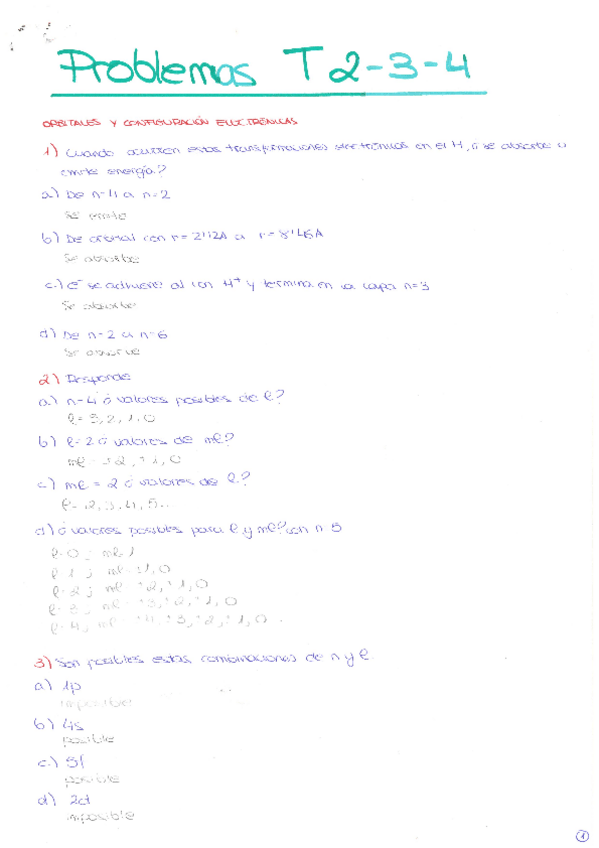 Problemas T2-3-4
ORBITALES Y CONFIGURACIÓN ELECTRÓNICAS
1) Cuando ocurren estas transformaciones electrónicas en el H, ¿ se absorbe o
emite energía?
a) De n=4 a n=2
Se emite
b) De orbital con r= 2'12A a r= 8'46A
Se absorbe
c.) e⁻ se adhiere al ion H⁺ y termina en la capa n=3
Se absorbe
d) De n=2 a n=6
Se absorve
2) Responde
a) n=4 ¿ valores posibles de l?
l= 3, 2, 1, 0
b) l=2 ¿ valores de ml?
ml = ±2, ±1, 0
c) ml = 2 ¿ valores de l?
l= 2, 3, 4, 5...
d) ¿ valores posibles para l y ml? con n=5
l=0 ; ml=1
l=1 ; ml=±1, 0
l=2 ; ml= ±2, ±1, 0
l=3 ; ml= ±3, ±2, ±1, 0
l=4; ml= ±4, ±3, ±2, ±1, 0
3) Son posibles estas combinaciones de n y l
a) 1p
imposible
b) 4s
posible
c.) 5f
posible
d) 2d
imposible
1